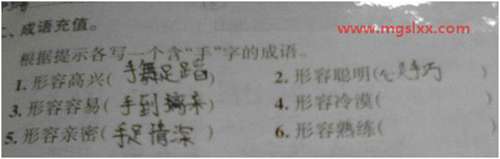 www.mgslxx.com
、成语充值。
根据提示各写一个含“手”字的成语。
1. 形容高兴(手舞足蹈) 2. 形容聪明(心灵手巧)
3. 形容容易(手到擒来) 4. 形容冷漠( )
5. 形容亲密(手足情深) 6. 形容熟练( )